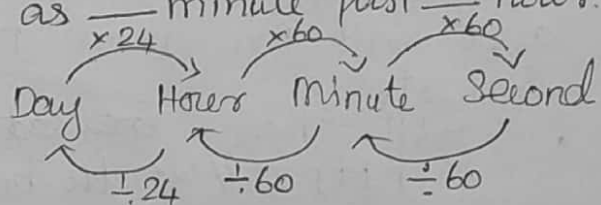 as ___ minute past ___ hours.
×24 ×60 ×60
Day Hour Minute Second
÷24 ÷60 ÷60